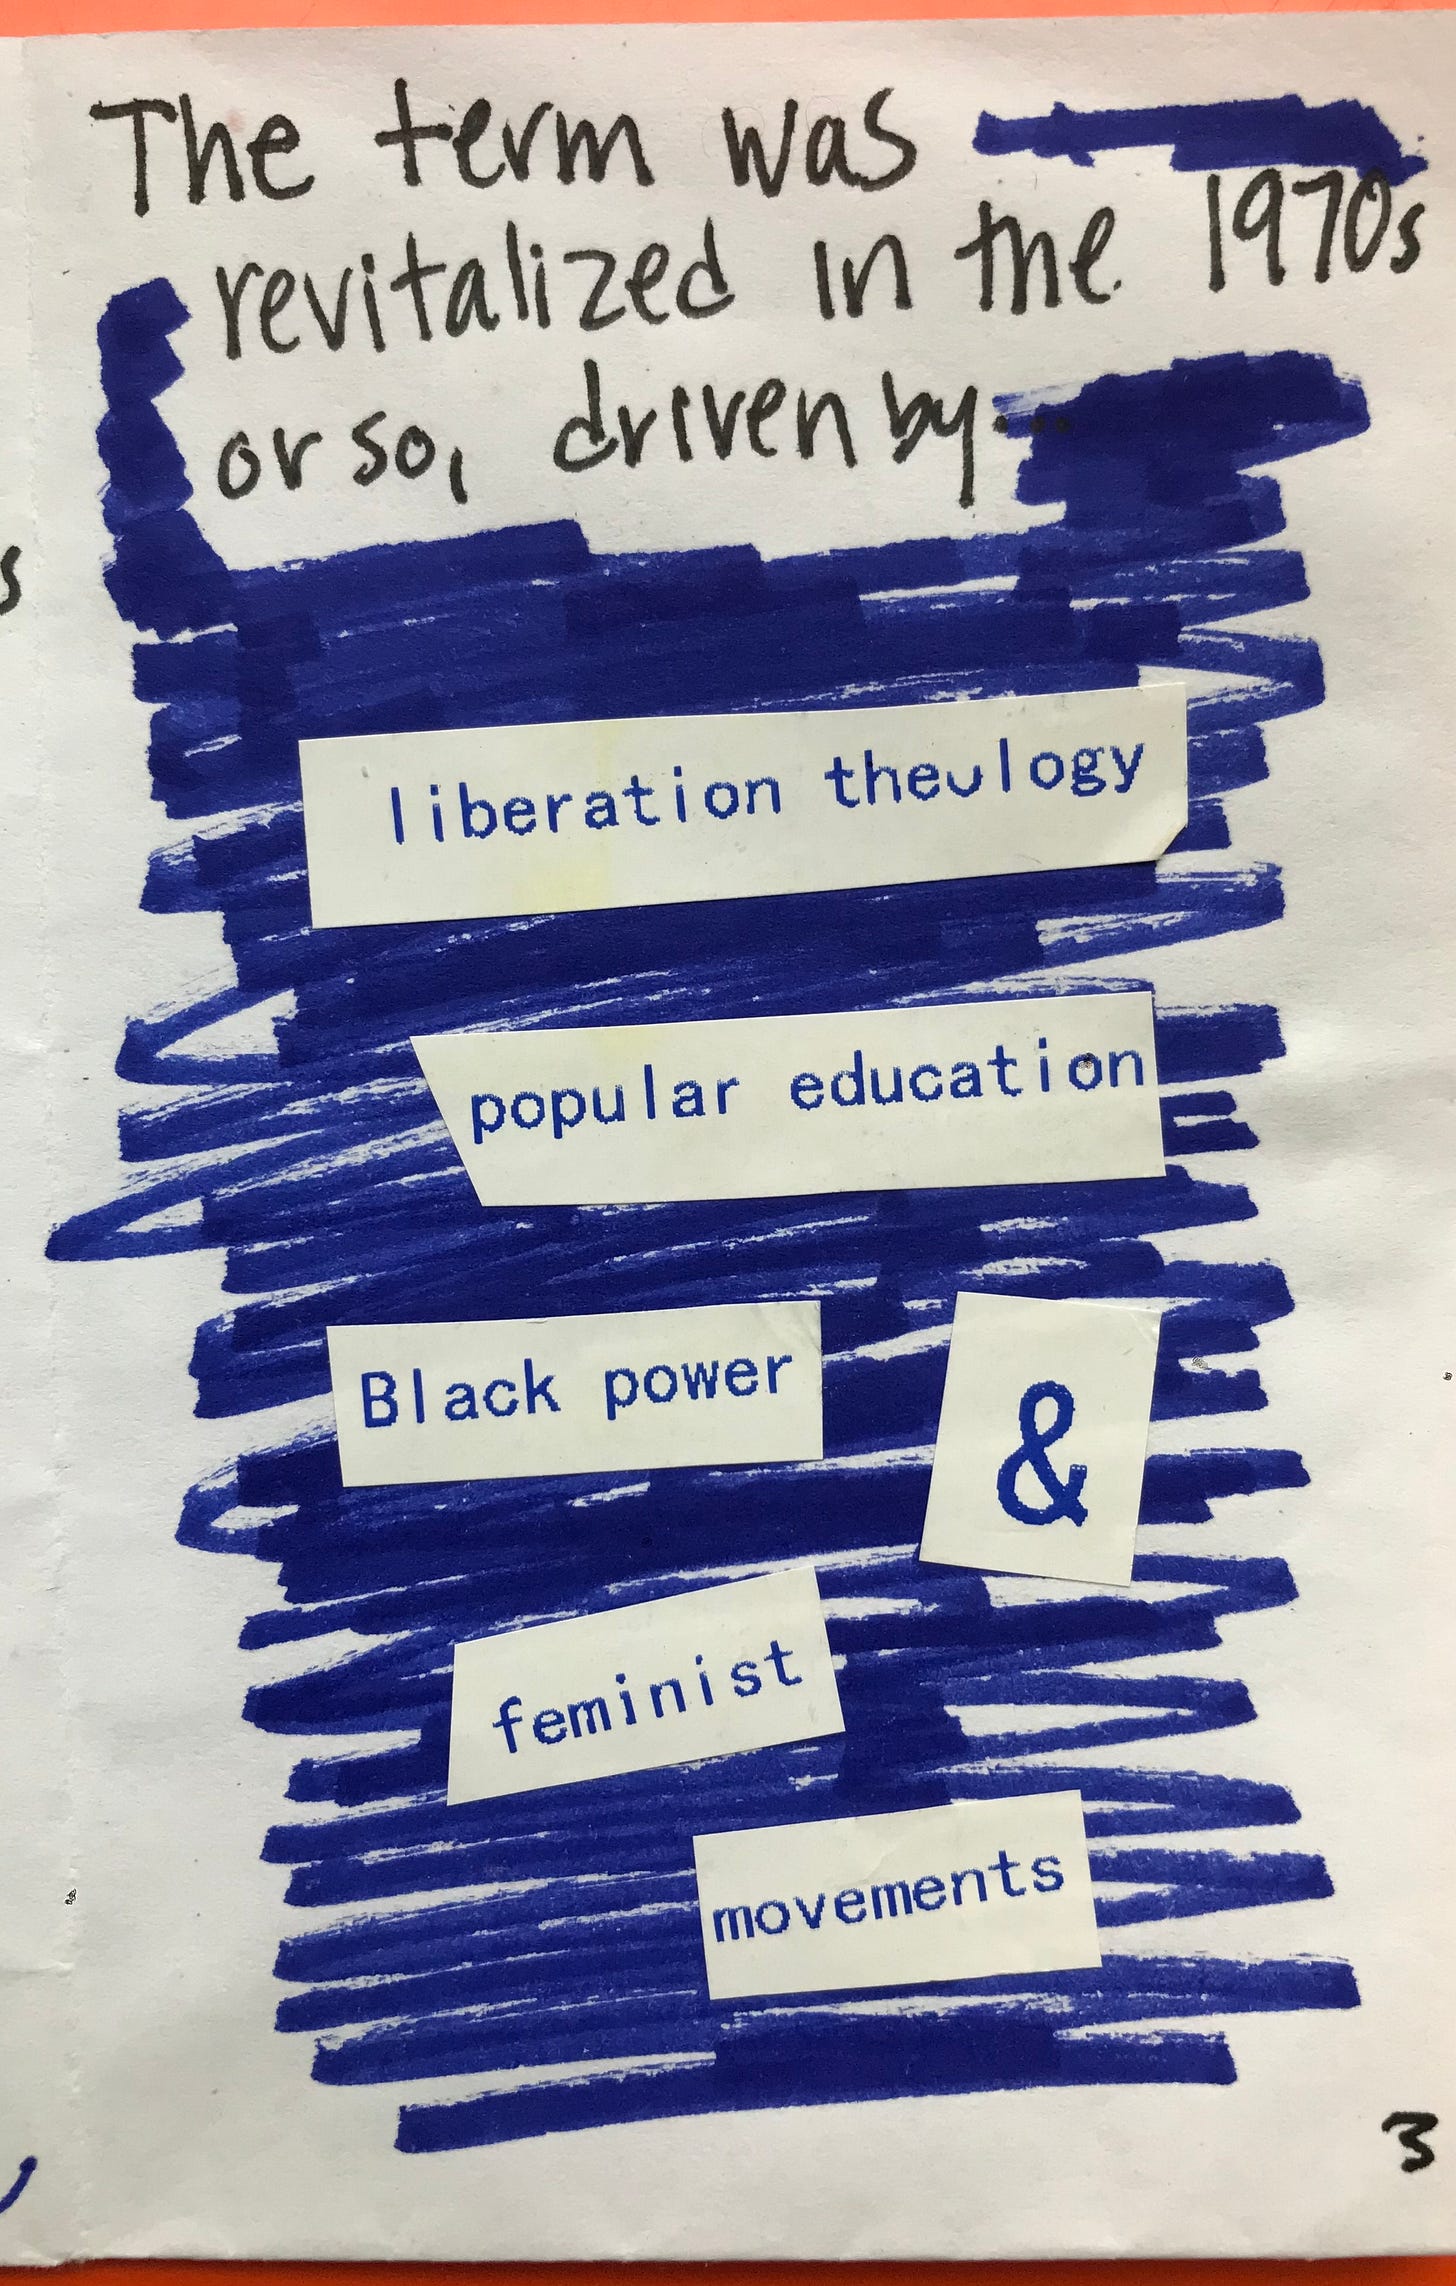 The term was
revitalized in the 1970s
or so, driven by...
liberation theology
popular education
Black power
&
feminist
movements
3
s